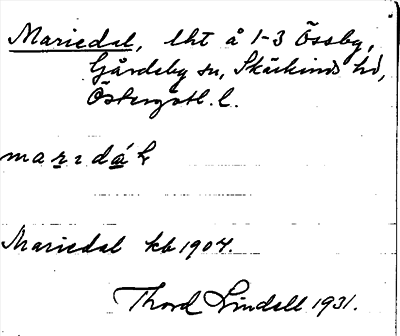 Mariedal, lht å 1-3 Össby,
Gårdeby sn, Skärkinds hd,
Östergötl. l.
Mariedal kb 1904.
Thord Lindell 1931.